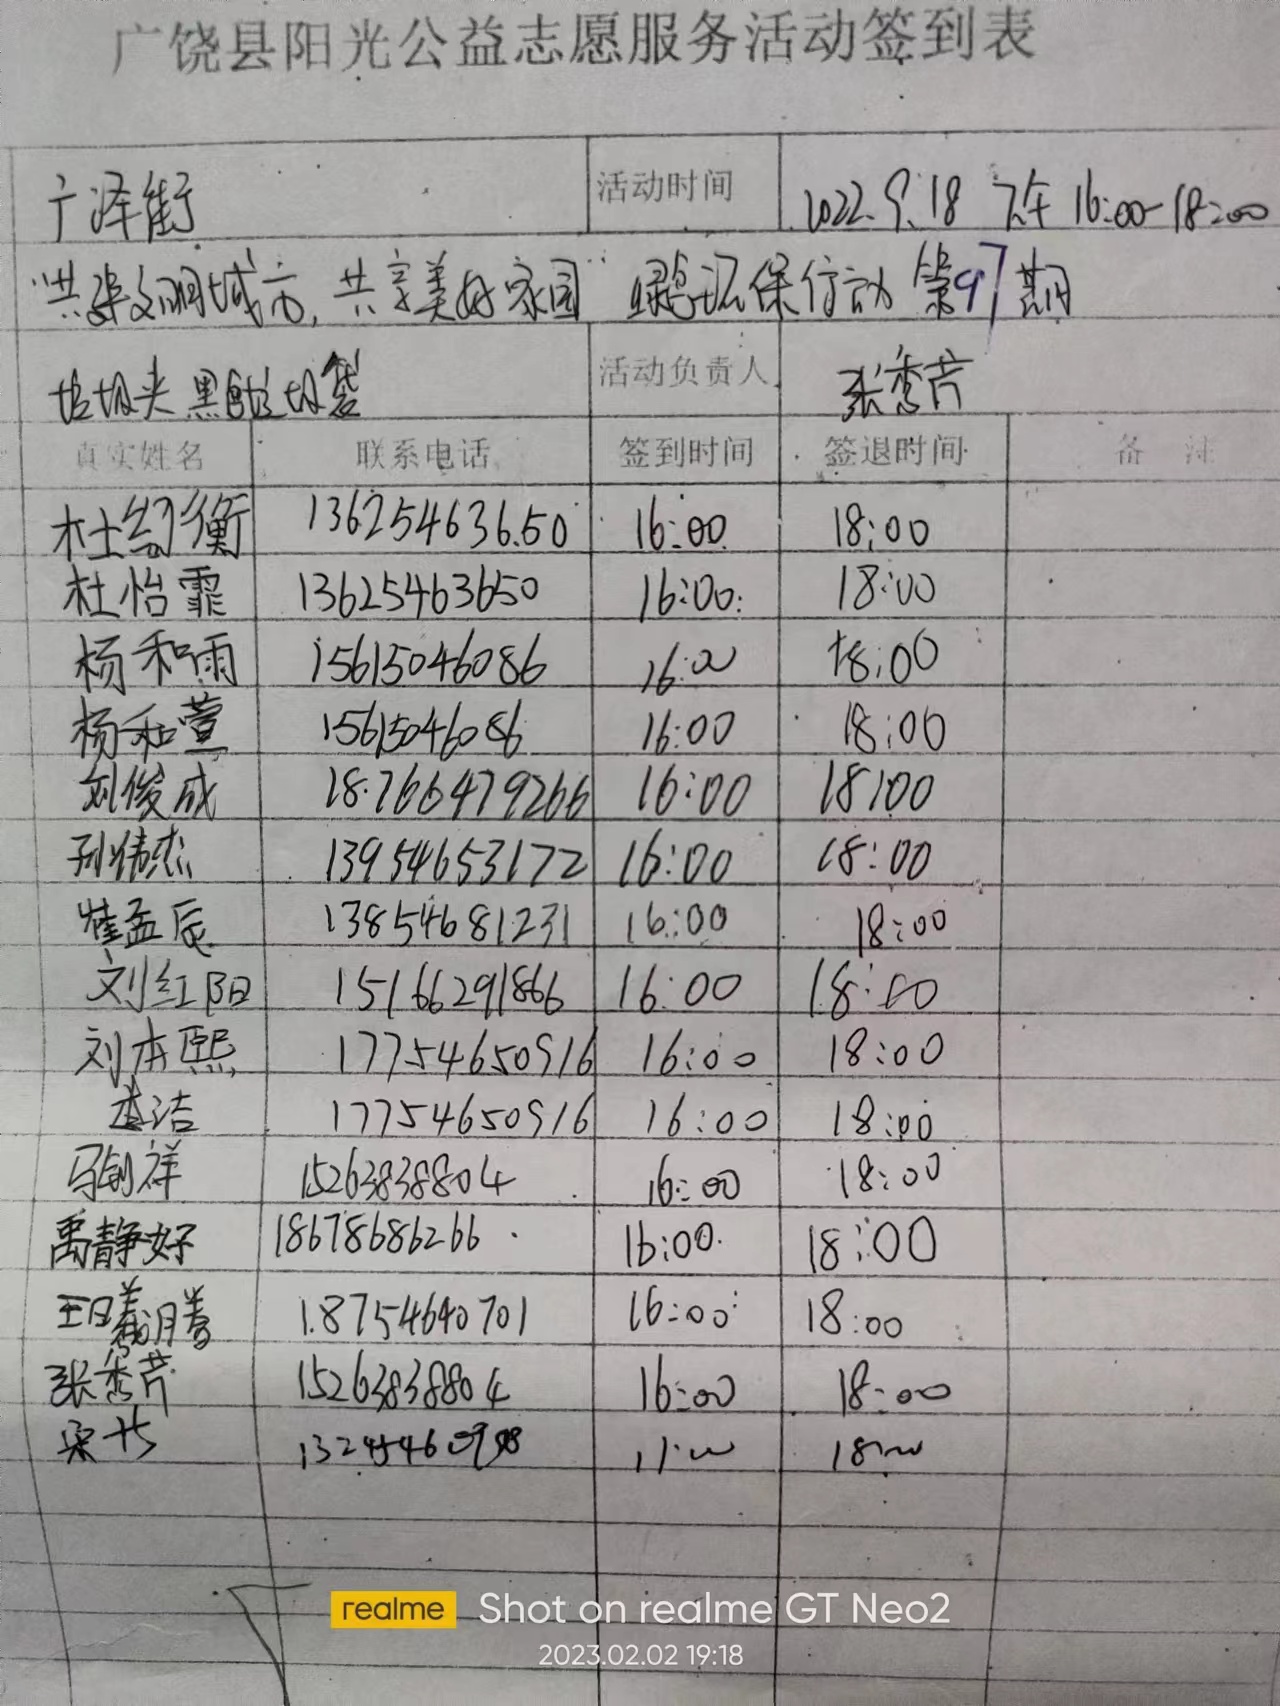 广饶县阳光公益志愿服务活动签到表
广泽街 活动时间 2022.9.18 下午 16:00-18:00
"共建文明城市,共享美好家园" 绿色环保行动 第97期
垃圾夹 黑色垃圾袋 活动负责人 张秀芹
真实姓名 联系电话 签到时间 签退时间 备 注
杜衡 13625463650 16:00 18:00
杜怡霏 13625463650 16:00 18:00
杨和雨 15615046086 16:00 18:00
杨和萱 15615046086 16:00 18:00
刘俊成 18766479266 16:00 18:00
孙炜杰 13954653172 16:00 18:00
崔孟辰 13854681231 16:00 18:00
刘红阳 15166291866 16:00 18:00
刘本熙 17754650916 16:00 18:00
李洁 17754650916 16:00 18:00
马钊祥 15263838804 16:00 18:00
禹静好 18678686266 16:00 18:00
王曦腾 18754640701 16:00 18:00
张秀芹 15263838804 16:00 18:00
18:00
realme Shot on realme GT Neo2
2023.02.02 19:18